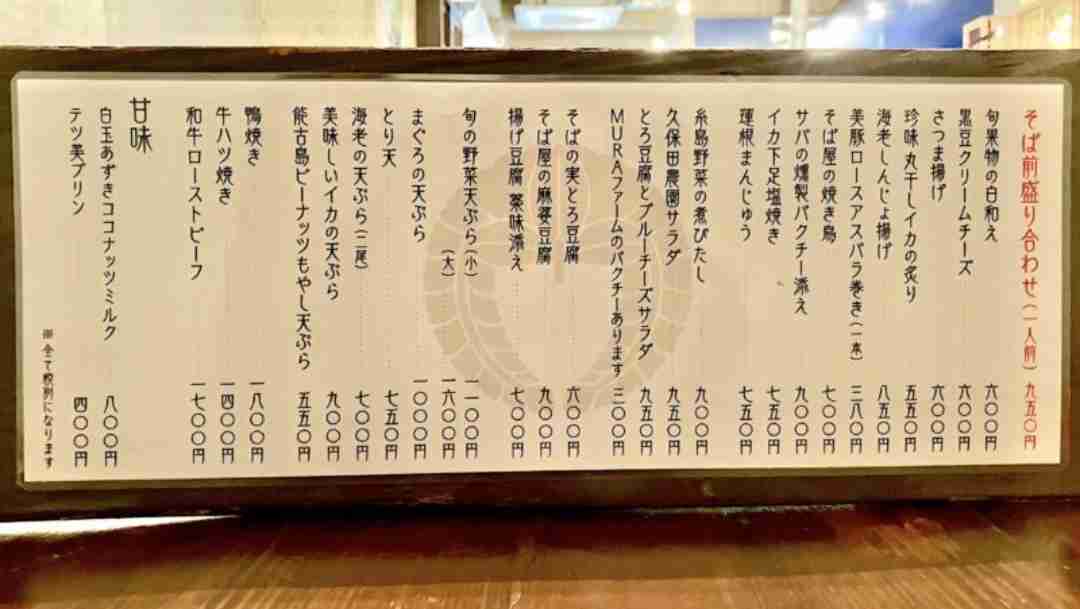 そば前盛り合わせ(一人前) 九五〇円
旬果物の白和え 六〇〇円
黒豆クリームチーズ 六〇〇円
さつま揚げ 六〇〇円
珍味 丸干しイカの炙り 五五〇円
海老しんじょ揚げ 八五〇円
美豚ロースアスパラ巻き(一本) 三八〇円
そば屋の焼き鳥 七〇〇円
サバの燻製パクチー添え 九〇〇円
イカ下足塩焼き 七五〇円
蓮根まんじゅう 七五〇円
糸島野菜の煮びたし 九〇〇円
久保田農園サラダ 九五〇円
とろ豆腐とブルーチーズサラダ 九五〇円
MURAファームのパクチーあります 三〇〇円
そばの実とろ豆腐 六〇〇円
そば屋の麻婆豆腐 九〇〇円
揚げ豆腐 薬味添え 七〇〇円
旬の野菜天ぷら(小) 一一〇〇円
(大) 一六〇〇円
まぐろの天ぷら 一〇〇〇円
とり天 七五〇円
海老の天ぷら(二尾) 七〇〇円
美味しいイカの天ぷら 九〇〇円
能古島ピーナッツもやし天ぷら 五五〇円
鴨焼き 一八〇〇円
牛ハツ焼き 一四〇〇円
和牛ローストビーフ 一七〇〇円
甘味
白玉あずきココナッツミルク 八〇〇円
テツ美プリン 四〇〇円
※全て税別になります